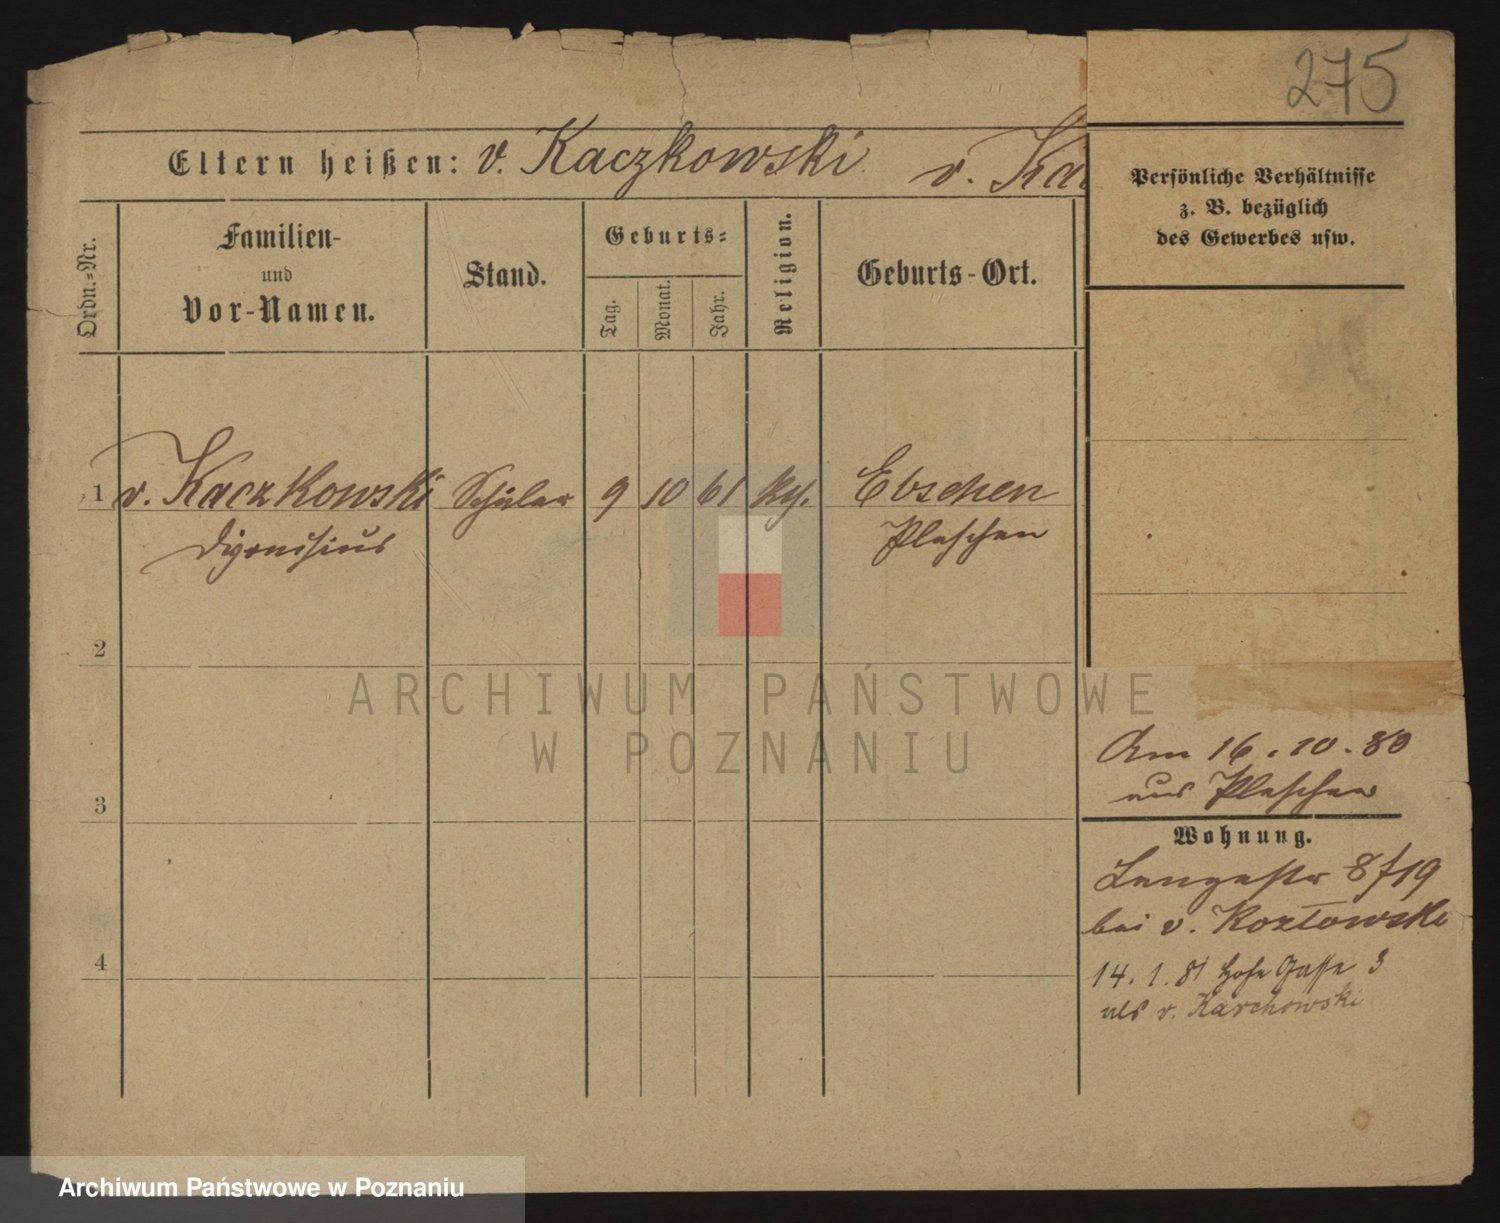 275
Eltern heißen: v. Kaczkowski v. Ka
Persönliche Verhältnisse
z. B. bezüglich
des Gewerbes usw.
Ordn.=Nr.
Familien-
und
Vor-Namen.
Stand.
Geburts=
Tag.
Monat.
Jahr.
Religion.
Geburts-Ort.
1 v. Kaczkowski Schüler 9 10 61 Ebschen
Dyonisius Pleschen
2
3
4
Am 16.10.80
aus Pleschen
Wohnung.
Langestr 8/19
bei v. Kozłowski
14.1.81 Hohe Gasse 3
als v. Karchowski
ARCHIWUM PAŃSTWOWE
W POZNANIU
Archiwum Państwowe w Poznaniu